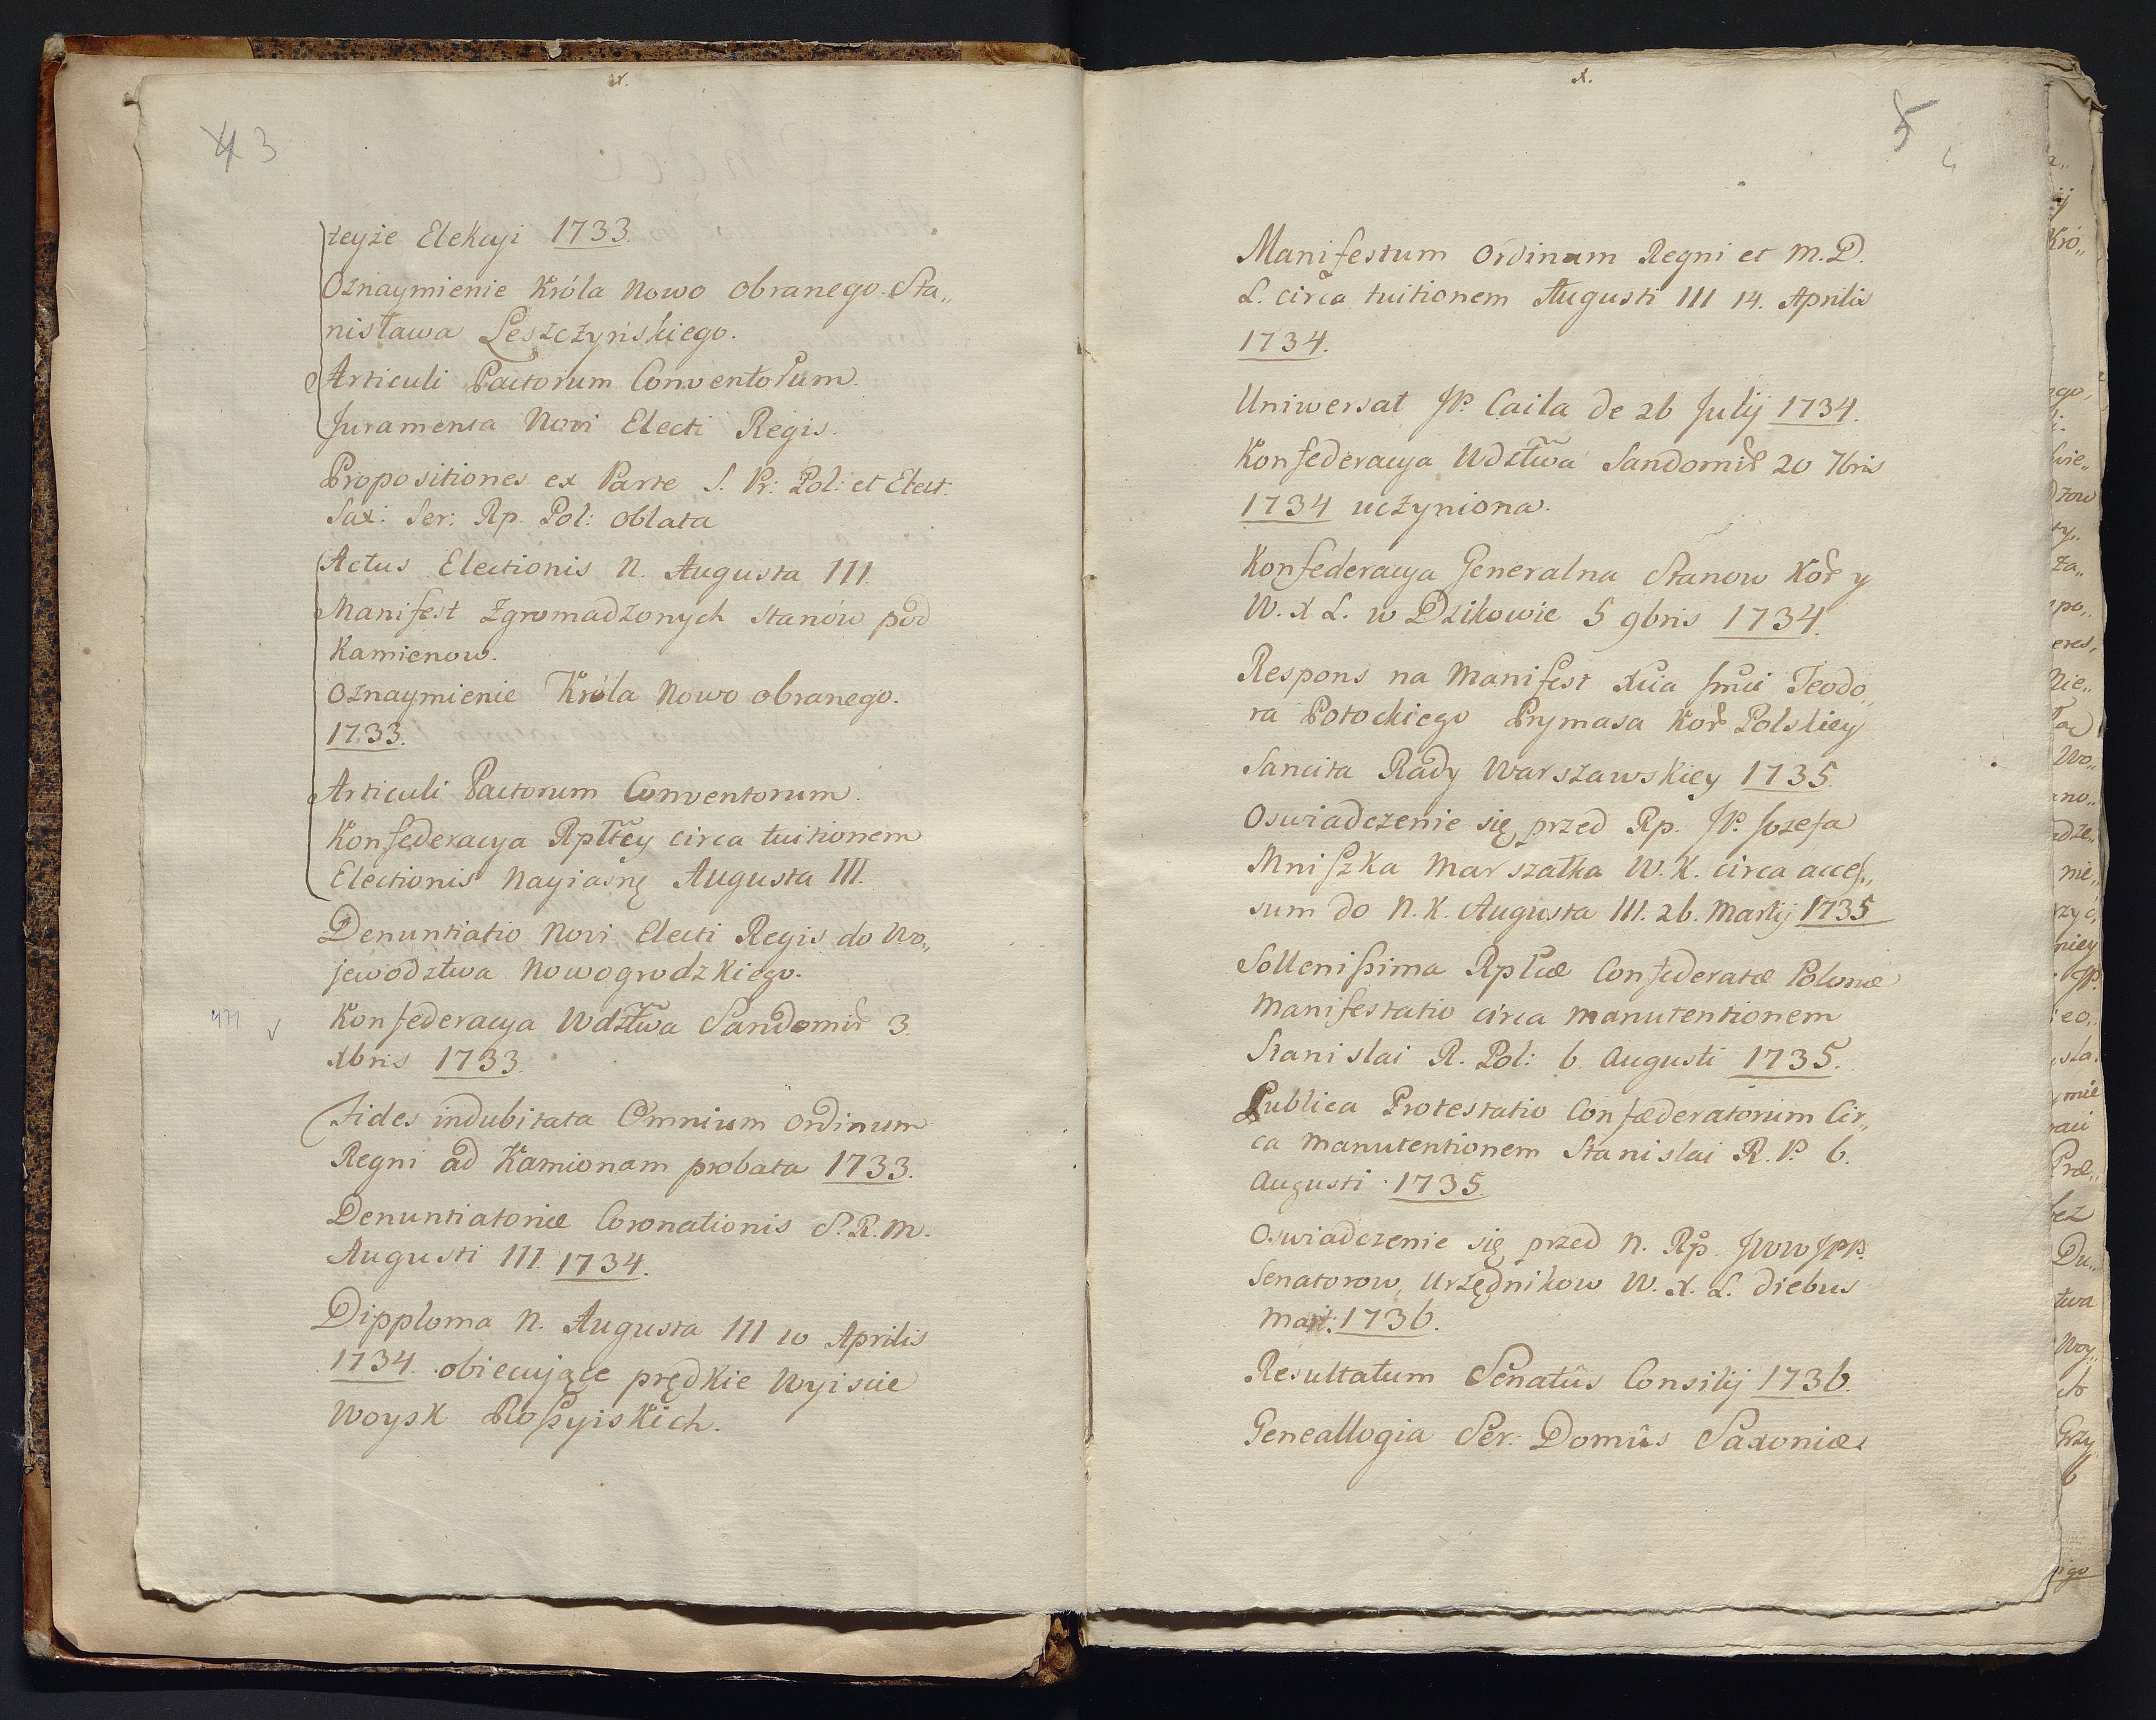 x.
4 3
teyże Elekcyi 1733.
Oznaymienie Króla Nowo obranego Sta„
nisława Leszczyńskiego.
Articuli Pactorum Conventorum.
Juramenta Novi Electi Regis.
Propositiones ex Parte S. Pr: Pol: et Elect:
Sax: Ser: Rp. Pol: oblata
Actus Electionis N. Augusta III.
Manifest Zgromadzonych Stanów pod
Kamienow.
Oznaymienie Króla Nowo obranego.
1733.
Articuli Pactorum Conventorum.
Konfederacya Rpltey circa tuitionem
Electionis Nayiasnę Augusta III.
Denuntiatio Novi Electi Regis do Wo„
jewodztwa Nowogrodzkiego.
471 v Konfederacya Wdztwa Sandomir 3.
Xbris 1733.
Fides indubitata Omnium Ordinum
Regni ad Kamionam probata 1733.
Denuntiatoriæ Coronationis S. R. M.
Augusti III. 1734.
Dipploma N. Augusta III 10 Aprilis
1734. obiecujące prędkie Wyiscie
Woysk Roßyiskich.
x.
5
Manifestum Ordinum Regni et M. D.
L. circa tuitionem Augusti III 14. Aprilis
1734.
Uniwersał JP. Caila de 26 Julij 1734.
Konfederacya Wdztwa Sandomir 20 7bris
1734 uczyniona.
Konfederacya Generalna Stanow Kor y
W. X L. w Dzikowie 5 9bris 1734.
Respons na Manifest Xcia Jmci Teodo„
ra Potockiego Prymasa Kor Polskiey
Sancita Rady Warszawskiey 1735.
Oswiadczenie się przed Rp. JP. Jozefa
Mniszka Marszałka W. K. circa acces„
sum do N. K. Augusta III. 26. Martij 1735
Sollenißima Rplcæ Confederatæ Polonæ
Manifestatio circa manutentionem
Stanislai R. Pol: 6 Augusti 1735.
Publica Protestatio Confæderatorum Cir„
ca manutentionem Stanislai R. P. 6.
Augusti 1735.
Oswiadczenie się przed N. Rp. JWW JPP.
Senatorow, Urzędnikow W. X. L. diebus
Maji: 1736.
Resultatum Senatûs Consilij 1736.
Geneallogia Ser: Domûs Saxoniæ